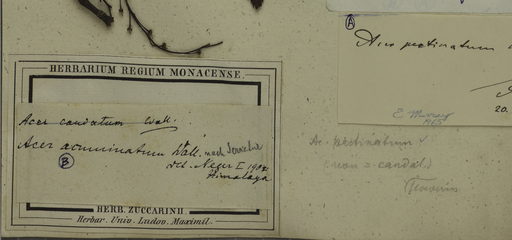 HERBARIUM REGIUM MONACENSE.
Acer caudatum Wall.
Acer acuminatum Wall. nach
det. Neger I 1902.
Himalaya
B
HERB. ZUCCARINII
Herbar. Univ. Ludov. Maximil.
A
Acer pectinatum
20.
E Murray
1965
Ac. pectinatum
(non = caudat.)